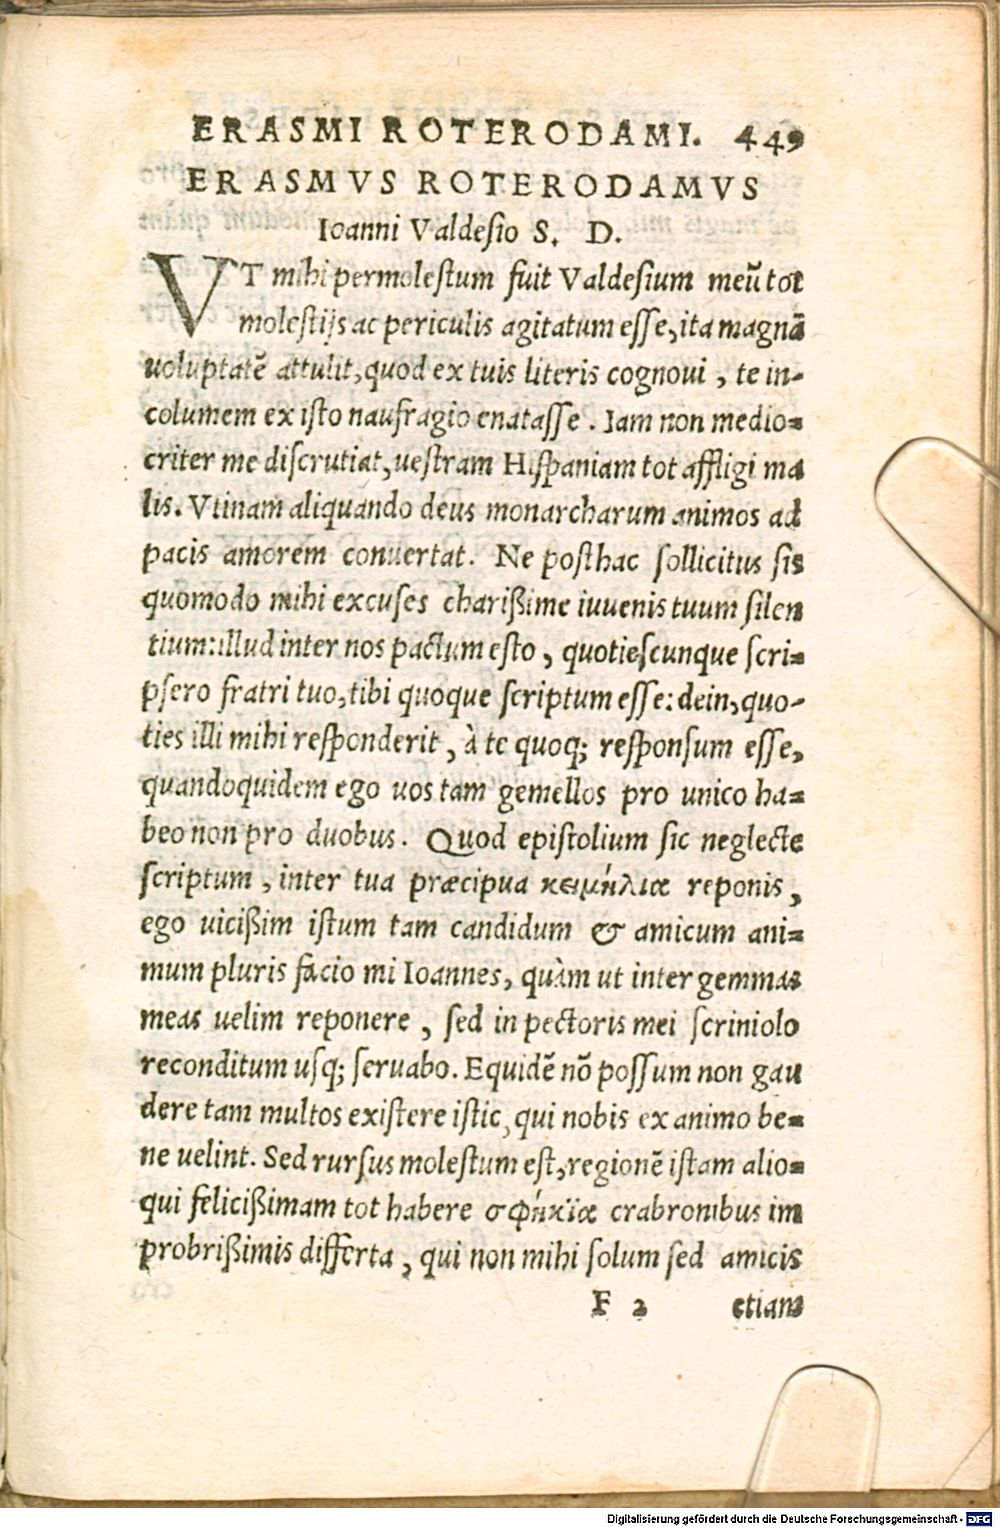 ERASMI ROTERODAMI. 449
ERASMVS ROTERODAMVS
Ioanni Valdesio S. D.
VT mihi permolestum fuit Valdesium meũ tot
molestijs ac periculis agitatum esse, ita magnã
uoluptatẽ attulit, quod ex tuis literis cognoui, te in-
columem ex isto naufragio enatasse. Iam non medio=
criter me discrutiat, uestram Hispaniam tot affligi ma
lis. Vtinam aliquando deus monarcharum animos ad
pacis amorem conuertat. Ne posthac sollicitus sis
quomodo mihi excuses charißime iuuenis tuum silen
tium: illud inter nos pactum esto, quotiescunque scri=
psero fratri tuo, tibi quoque scriptum esse: dein, quo-
ties illi mihi responderit, à te quoq; responsum esse,
quandoquidem ego uos tam gemellos pro unico ha=
beo non pro duobus. Quod epistolium sic neglecte
scriptum, inter tua præcipua κειμήλια reponis,
ego uicißim istum tam candidum & amicum ani=
mum pluris facio mi Ioannes, quàm ut inter gemmas
meas uelim reponere, sed in pectoris mei scriniolo
reconditum usq; seruabo. Equidẽ nõ possum non gau
dere tam multos existere istic, qui nobis ex animo be=
ne uelint. Sed rursus molestum est, regionẽ istam alio=
qui felicißimam tot habere σφήκϊα crabronibus im
probrißimis differta, qui non mihi solum sed amicis
F 2 etiam
Digitalisierung gefördert durch die Deutsche Forschungsgemeinschaft - DFG